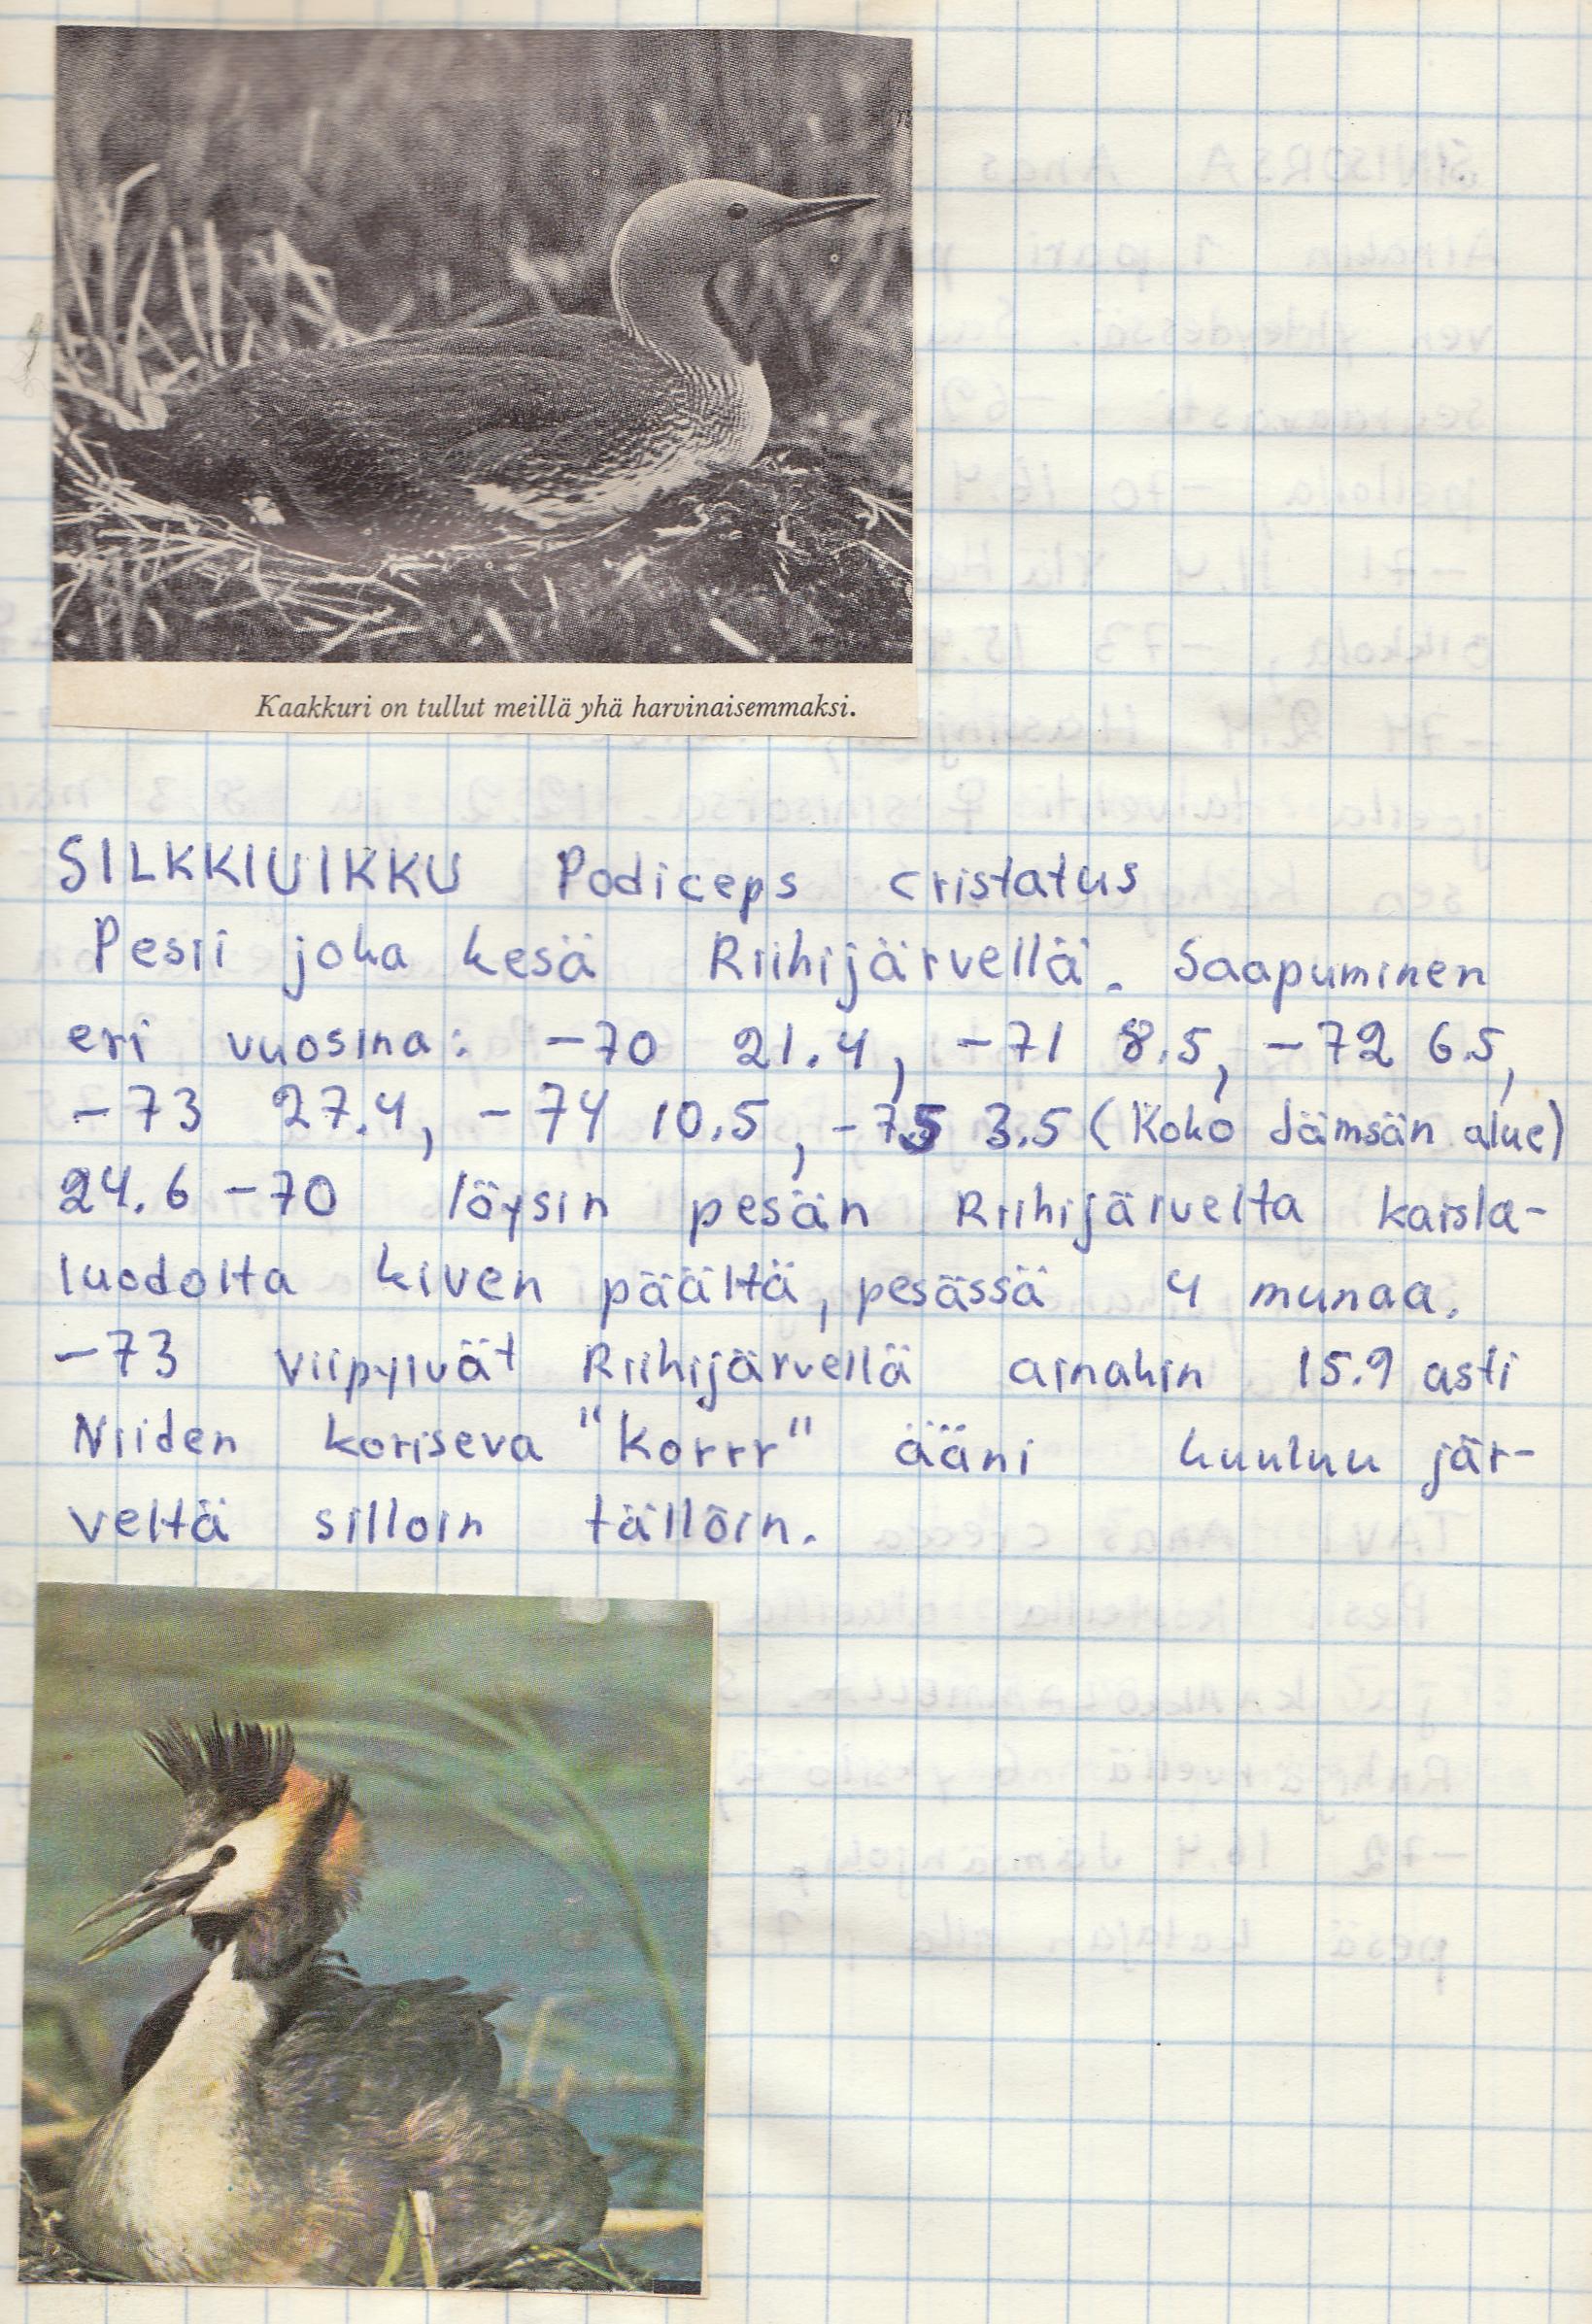 Kaakkuri on tullut meillä yhä harvinaisemmaksi.
SILKKIUIKKU Podiceps cristatus
Pesii joka kesä Riihijärvellä. Saapuminen
eri vuosina: -70 21.4, -71 8.5, -72 6.5,
-73 27.4, -74 10.5, -75 3.5 (Koko Jämsän alue)
24.6 -70 löysin pesän Riihijärvelta kaisla-
luodolta kiven päältä, pesässä 4 munaa.
-73 viipyivät Riihijärvellä ainakin 15.9 asti
Niiden koriseva "Korrr" ääni kuuluu jär-
veltä silloin tällöin.